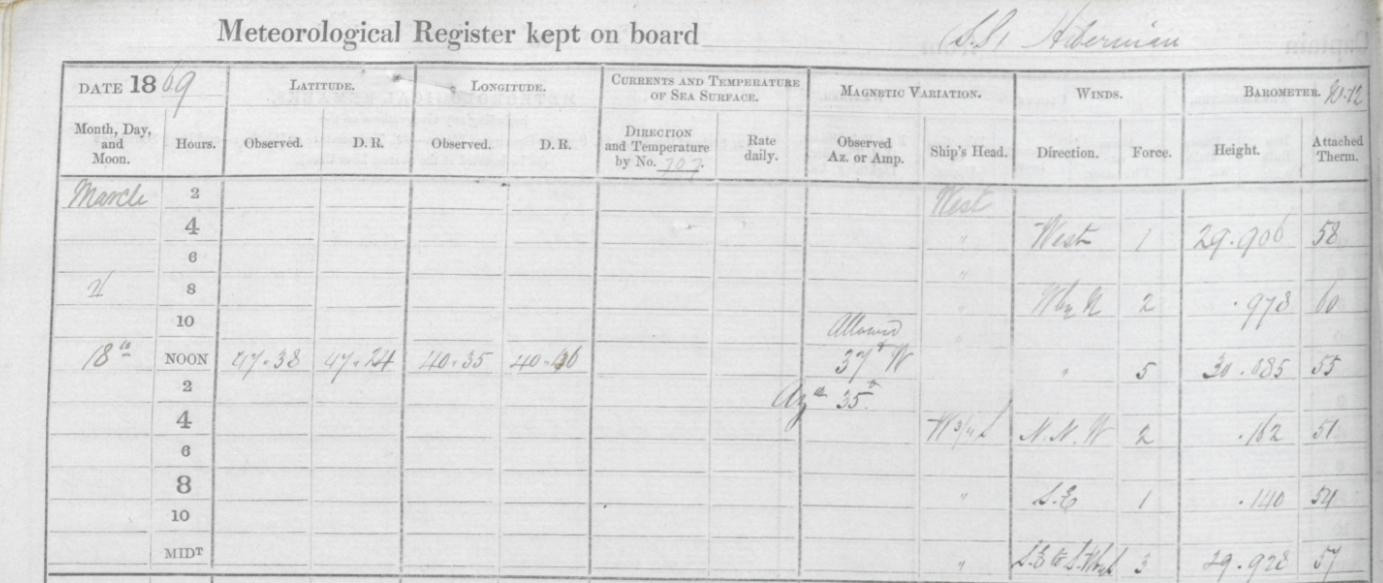 Meteorological Register kept on board S.S. Hibernian
DATE 1869 LATITUDE. LONGITUDE. CURRENTS AND TEMPERATURE OF SEA SURFACE. MAGNETIC VARIATION. WINDS. BAROMETER.
Month, Day, and Moon. Hours. Observed. D. R. Observed. D. R. DIRECTION and Temperature by No. 707. Rate daily. Observed Az. or Amp. Ship's Head. Direction. Force. Height. Attached Therm.
March 2 West
4 " West 1 29.906 58
6 "
8 " W by N 2 .978 60
10 Allowed "
18th NOON 47.38 47.24 40.35 40.36 37° W " 5 30.085 55
2 Azth 35°
4 W 3/4 S N.N.W 2 .162 51
6
8 " S.E 1 .140 54
10
MIDT " 3 29.928 57